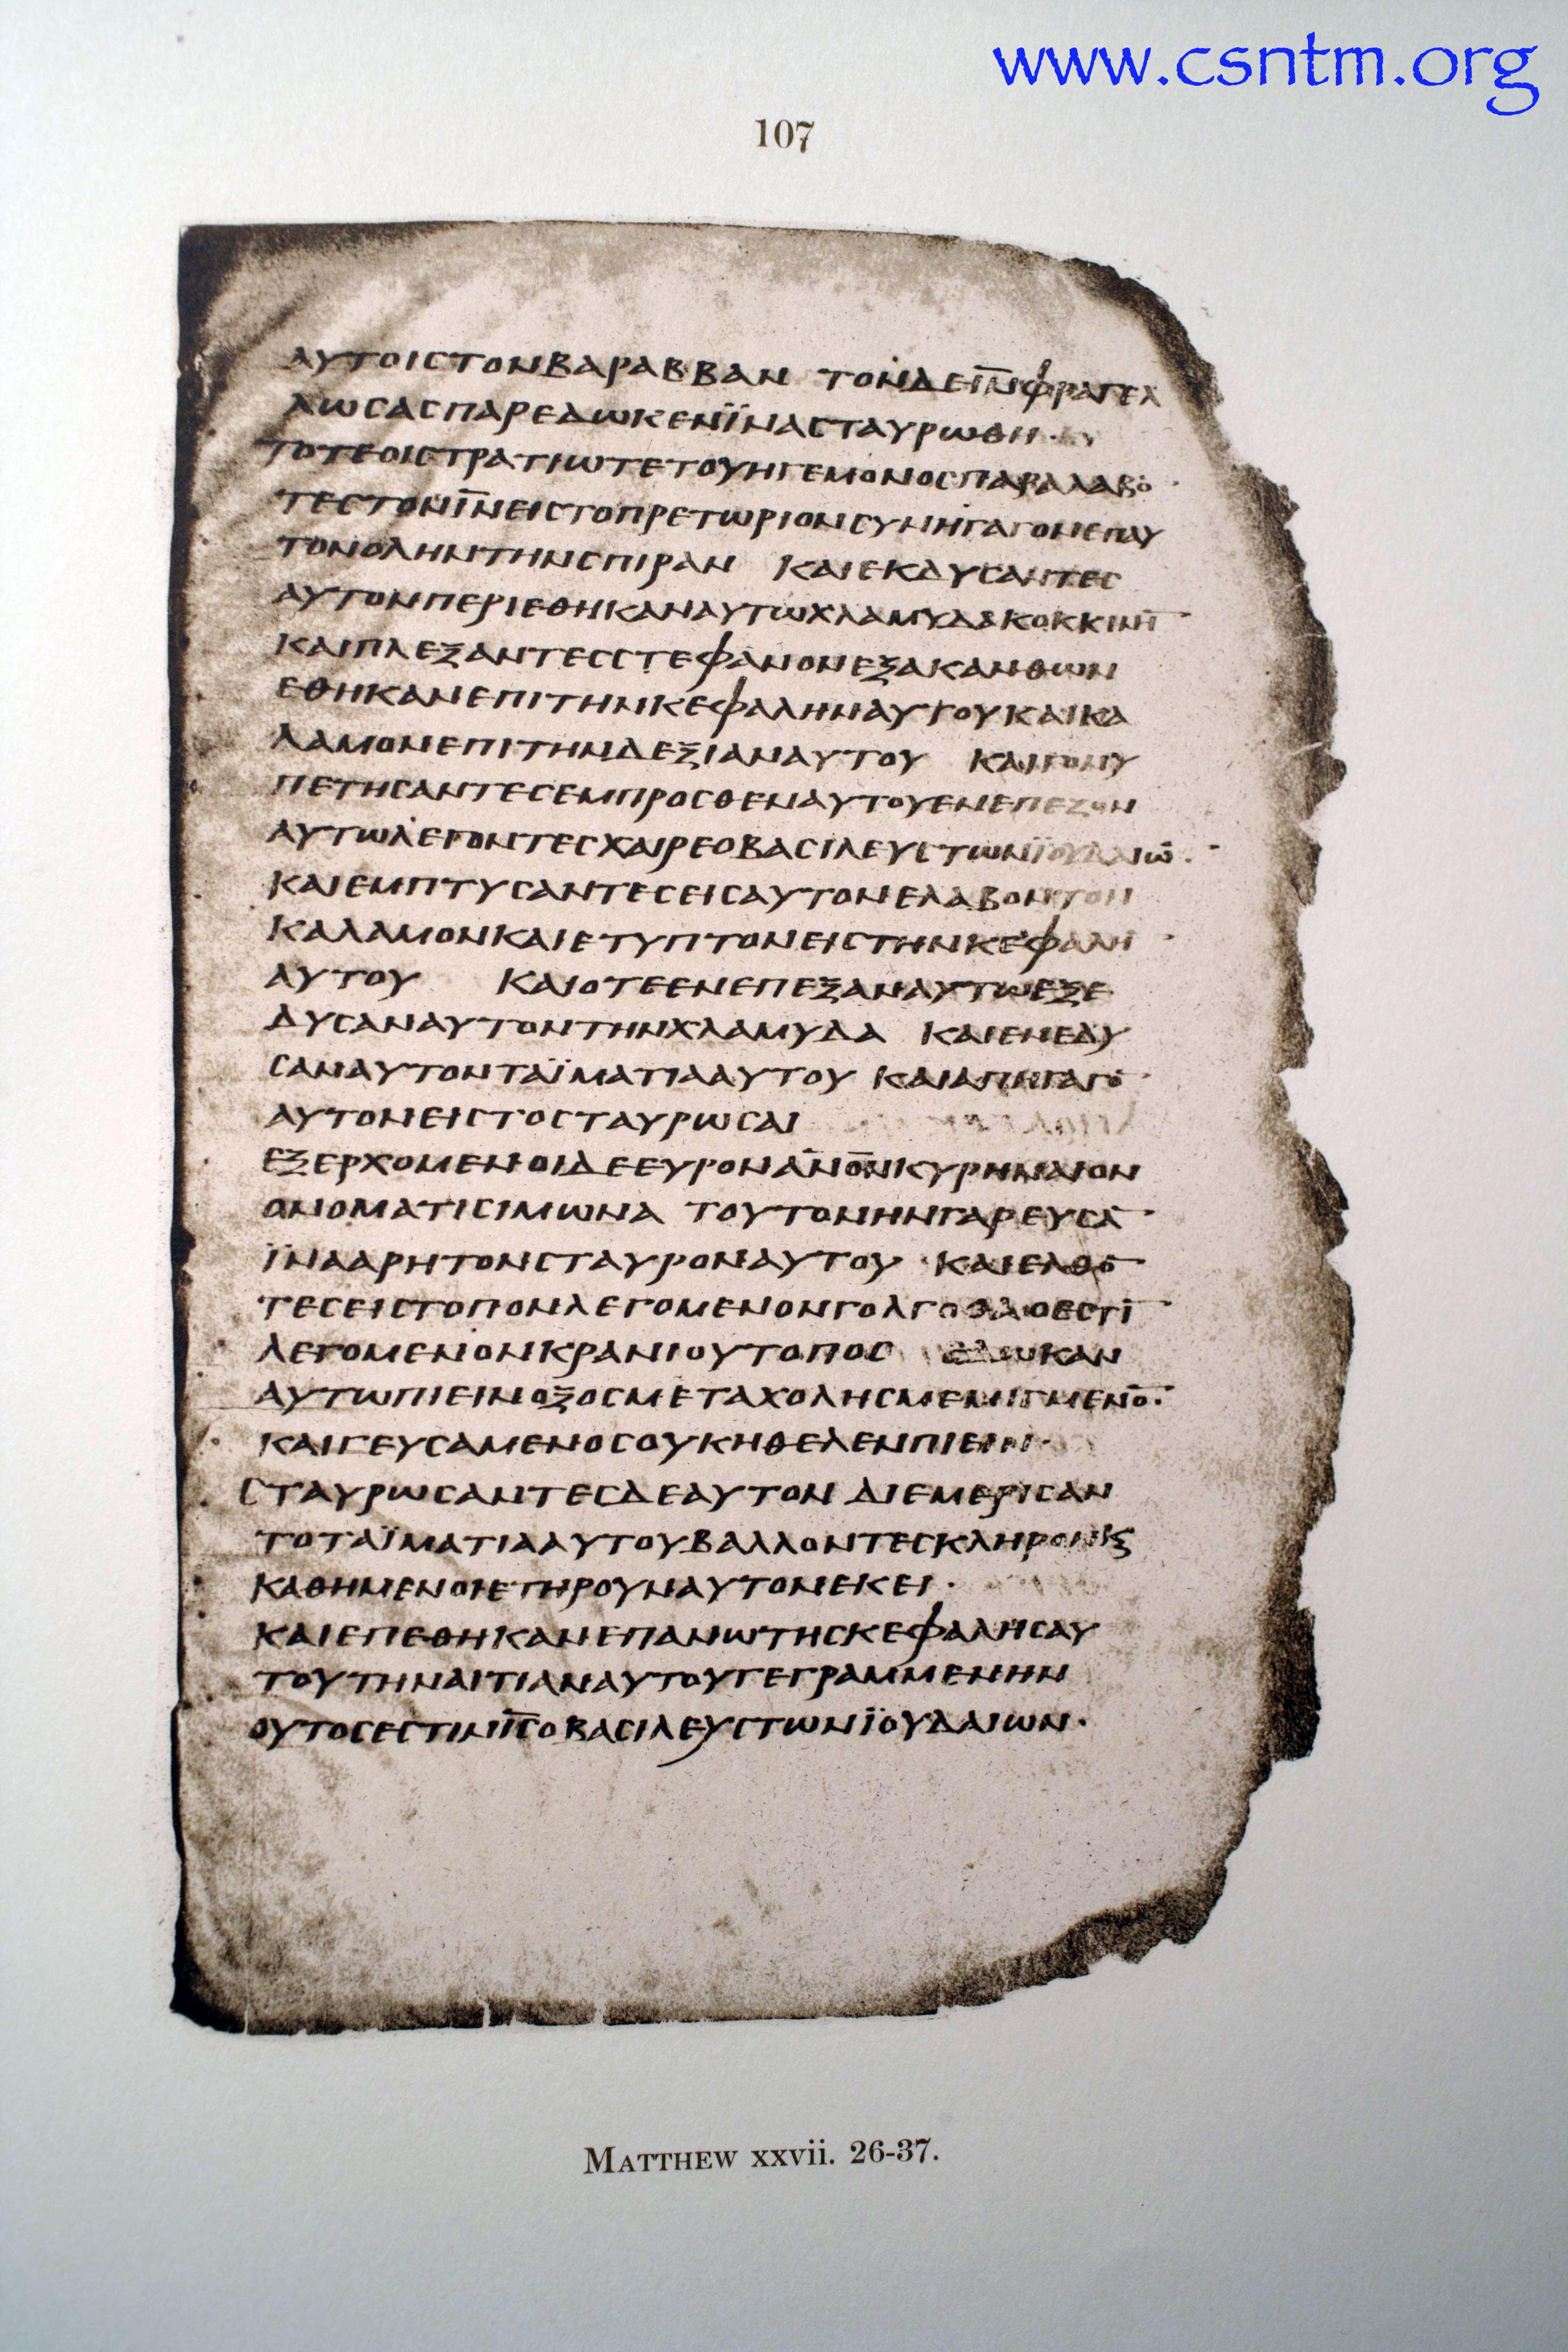 www.csntm.org
107
ΑΥΤΟΙСΤΟΝΒΑΡΑΒΒΑΝ ΤΟΝΔΕΙ̅Ν̅ΦΡΑΓΕΛ
ΛΩСΑСΠΑΡΕΔΩΚΕΝΪΝΑСΤΑΥΡΩΘΗ·
ΤΟΤΕΟΙСΤΡΑΤΙΩΤΕΤΟΥΗΓΕΜΟΝΟСΠΑΡΑΛΑΒΟ̅
ΤΕСΤΟΝΙ̅Ν̅ΕΙСΤΟΠΡΕΤΩΡΙΟΝСΥΝΗΓΑΓΟΝΕΠΑΥ
ΤΟΝΟΛΗΝΤΗΝСΠΙΡΑΝ ΚΑΙΕΚΔΥСΑΝΤΕС
ΑΥΤΟΝΠΕΡΙΕΘΗΚΑΝΑΥΤΩΧΛΑΜΥΔΑΚΟΚΚΙΝΗ̅
ΚΑΙΠΛΕΞΑΝΤΕССΤΕΦΑΝΟΝΕΞΑΚΑΝΘΩΝ
ΕΘΗΚΑΝΕΠΙΤΗΝΚΕΦΑΛΗΝΑΥΤΟΥΚΑΙΚΑ
ΛΑΜΟΝΕΠΙΤΗΝΔΕΞΙΑΝΑΥΤΟΥ ΚΑΙΓΟΝΥ
ΠΕΤΗСΑΝΤΕСΕΜΠΡΟСΘΕΝΑΥΤΟΥΕΝΕΠΕΖΟΝ
ΑΥΤΩΛΕΓΟΝΤΕСΧΑΙΡΕΟΒΑСΙΛΕΥСΤΩΝΪΟΥΔΑΙΩ̅·
ΚΑΙΕΜΠΤΥСΑΝΤΕСΕΙСΑΥΤΟΝΕΛΑΒΟΝΤΟΝ
ΚΑΛΑΜΟΝΚΑΙΕΤΥΠΤΟΝΕΙСΤΗΝΚΕΦΑΛΗ̅
ΑΥΤΟΥ ΚΑΙΟΤΕΕΝΕΠΕΞΑΝΑΥΤΩΕΞΕ
ΔΥСΑΝΑΥΤΟΝΤΗΝΧΛΑΜΥΔΑ ΚΑΙΕΝΕΔΥ
СΑΝΑΥΤΟΝΤΑΪΜΑΤΙΑΑΥΤΟΥ ΚΑΙΑΠΗΓΑΓΟ̅
ΑΥΤΟΝΕΙСΤΟСΤΑΥΡΩСΑΙ
ΕΞΕΡΧΟΜΕΝΟΙΔΕΕΥΡΟΝΑ̅Ν̅Ο̅Ν̅ΚΥΡΗΝΑΙΟΝ
ΟΝΟΜΑΤΙСΙΜΩΝΑ ΤΟΥΤΟΝΗΝΓΑΡΕΥСΑ̅
ΪΝΑΑΡΗΤΟΝСΤΑΥΡΟΝΑΥΤΟΥ ΚΑΙΕΛΘΟ̅
ΤΕСΕΙСΤΟΠΟΝΛΕΓΟΜΕΝΟΝΓΟΛΓΟΘΑΟΕСΤΙ̅
ΛΕΓΟΜΕΝΟΝΚΡΑΝΙΟΥΤΟΠΟС ΕΔΩΚΑΝ
ΑΥΤΩΠΙΕΙΝΟΞΟСΜΕΤΑΧΟΛΗСΜΕΜΙΓΜΕΝΟ̅·
ΚΑΙΓΕΥСΑΜΕΝΟСΟΥΚΗΘΕΛΕΝΠΙΕΙΝ·
СΤΑΥΡΩСΑΝΤΕСΔΕΑΥΤΟΝ ΔΙΕΜΕΡΙСΑΝ
ΤΟΤΑΪΜΑΤΙΑΑΥΤΟΥΒΑΛΛΟΝΤΕСΚΛΗΡΟΝΚϚ
ΚΑΘΗΜΕΝΟΙΕΤΗΡΟΥΝΑΥΤΟΝΕΚΕΙ·
ΚΑΙΕΠΕΘΗΚΑΝΕΠΑΝΩΤΗСΚΕΦΑΛΗСΑΥ
ΤΟΥΤΗΝΑΙΤΙΑΝΑΥΤΟΥΓΕΓΡΑΜΜΕΝΗΝ
ΟΥΤΟСΕСΤΙΝΙ̅С̅ΟΒΑСΙΛΕΥСΤΩΝΪΟΥΔΑΙΩΝ·
MATTHEW xxvii. 26-37.